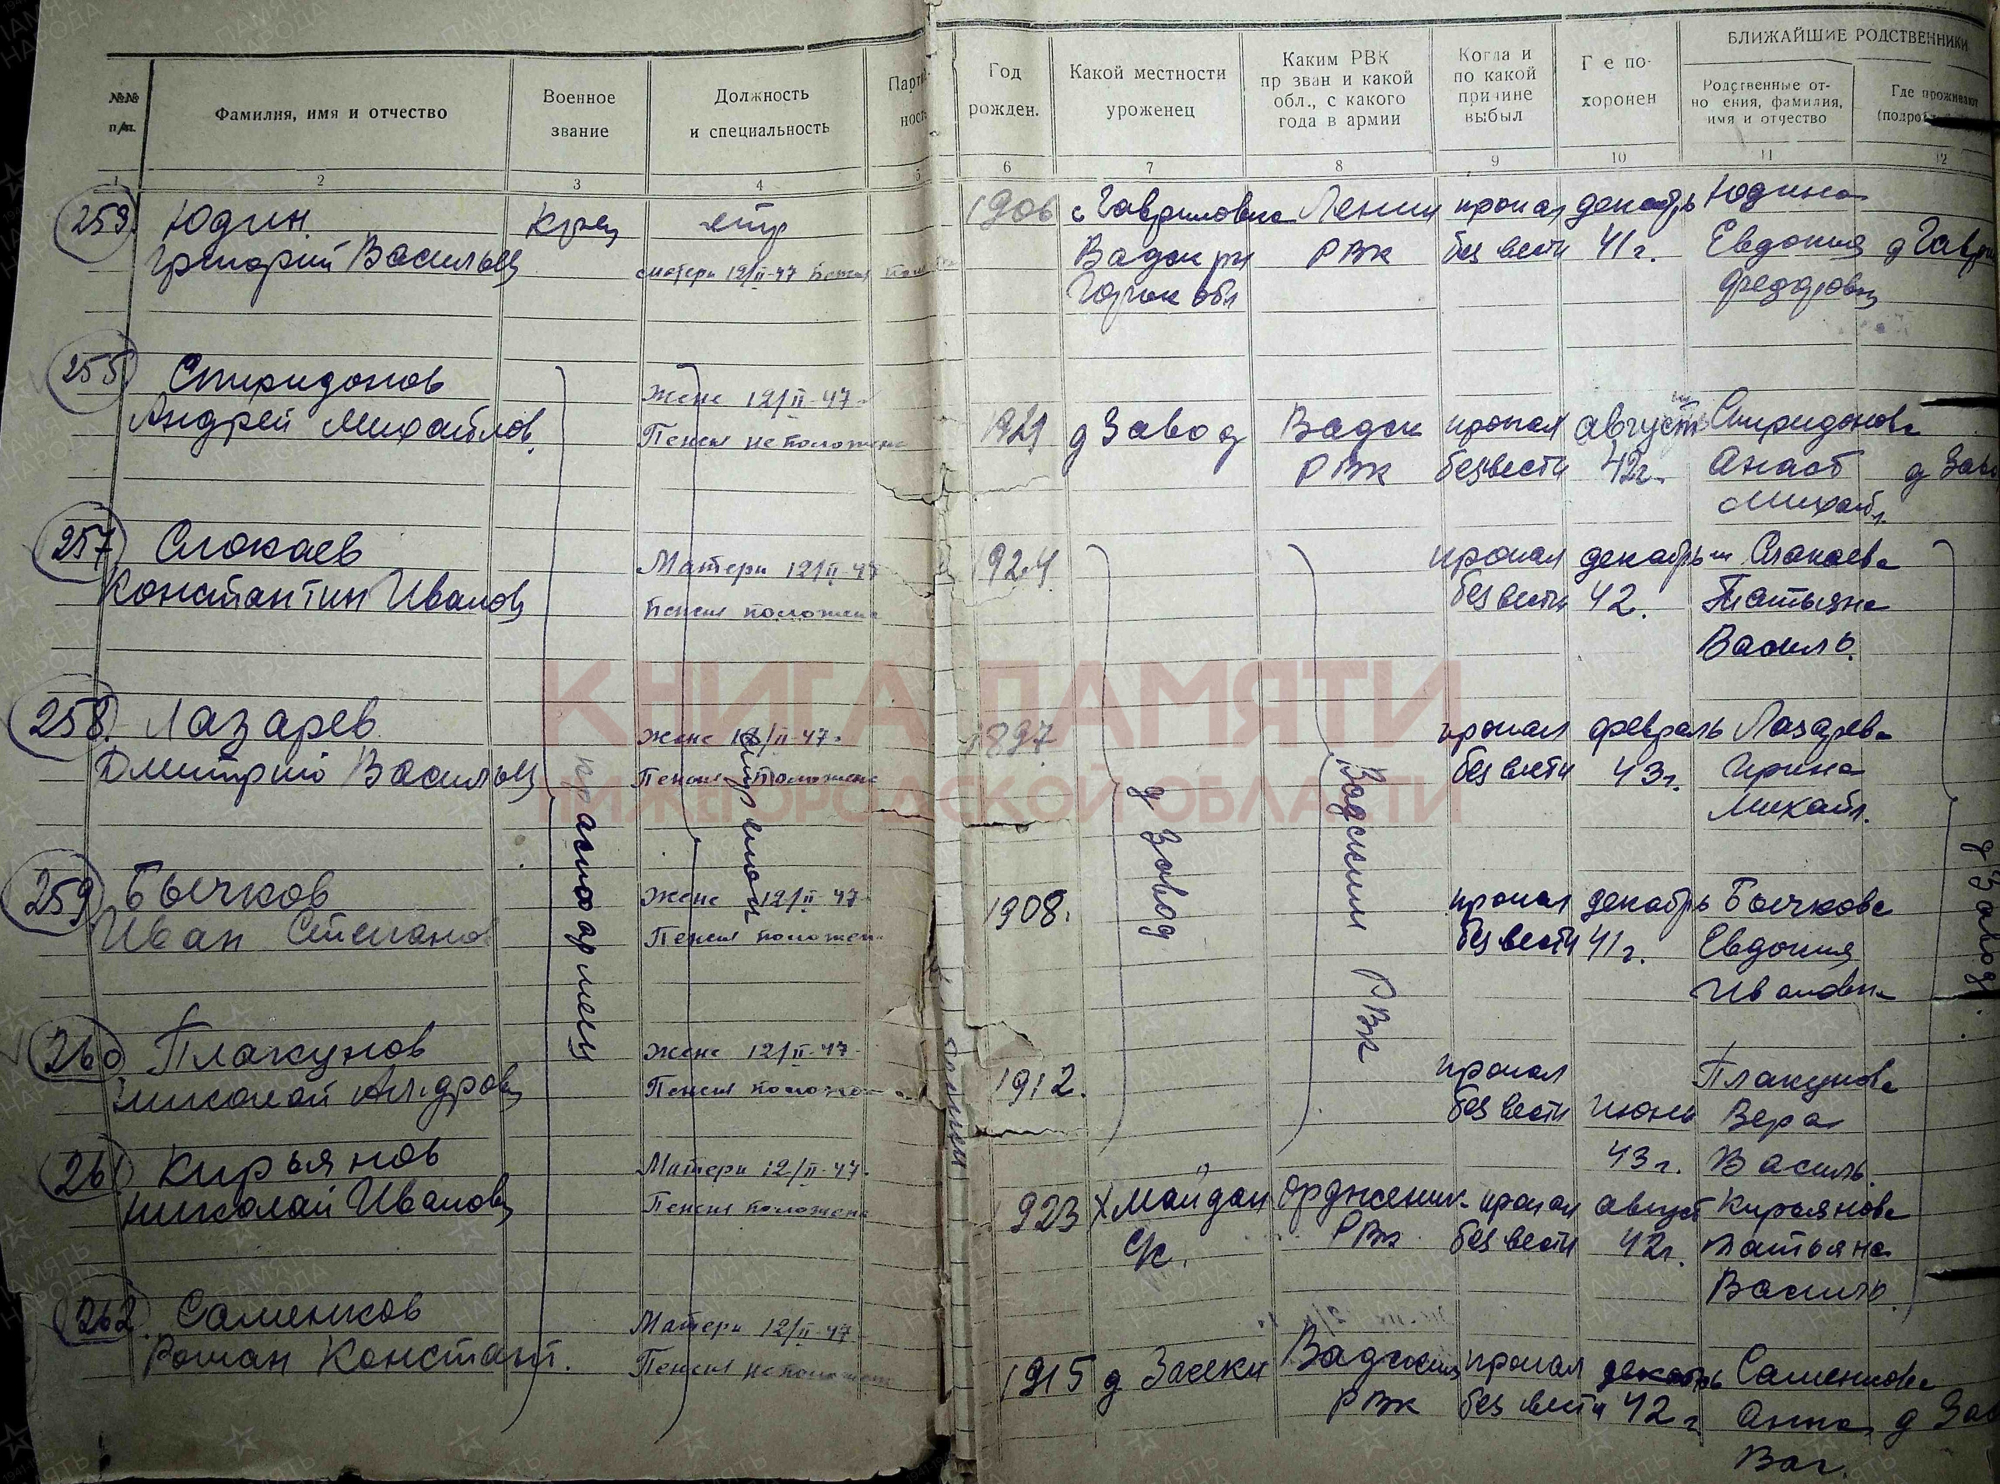 БЛИЖАЙШИЕ РОДСТВЕННИКИ
№№ п/п.
Фамилия, имя и отчество
Военное звание
Должность и специальность
Год рожден.
Какой местности уроженец
Каким РВК пр зван и какой обл., с какого года в армии
Когда и по какой причине выбыл
Г е по-хоронен
Родственные от-но ения, фамилия, имя и отчество
Где проживают
1 2 3 4 5 6 7 8 9 10 11 12
259. Юдин 1906 с Гавриловка Ленин пропал декабрь Юдина
Григорий Васильев матери 12/II-47 Вадск рн РВК без вести 41 г. Евдокия
Горьк обл Федоровн
255 Спиридонов Жене 12/II-47
Андрей Михайлов. Пенсия не положена 1921 д Завод Вадск пропал август Спиридонова
РВК без вести 42г. Анаст
Михайл.
257 Слокаев Матери 12/II-47 1924 пропал декабрь Слокаева
Константин Иванов Пенсия положена без вести 42. Татьяна
Василь.
258. Лазарев Жене 12/II-47 1897 пропал февраль Лазарева
Дмитрий Васильев Пенсия положена без вести 43г. Ирина
Михайл.
красноармеец
стрелок
д Завод
Вадский РВК
д Завод
259 Бычков Жене 12/II-47 1908. пропал декабрь Бычкова
Иван Степанов Пенсия положен без вести 41г. Евдокия
Ивановна
260 Плакунов Жене 12/II-47 1912. пропал Плакунова
Николай Ал-дров Пенсия положена без вести июнь Вера
43г. Василь.
261. Кирьянов Матери 12/II-47.
Николай Иванов Пенсия положена 923 Х Майдан Орджоник- пропал август Кирьянова
с/с. РВК без вести 42г. Татьяна
Василь.
262. Саменков Матери 12/II-47
Роман Констант. Пенсия не положен 1915 д Засеки Вадский пропал декабрь Саменкова
РВК без вести 42 г Анна д Зав
Вас.
КНИГА ПАМЯТИ
НИЖЕГОРОДСКОЙ ОБЛАСТИ
ПАМЯТЬ НАРОДА